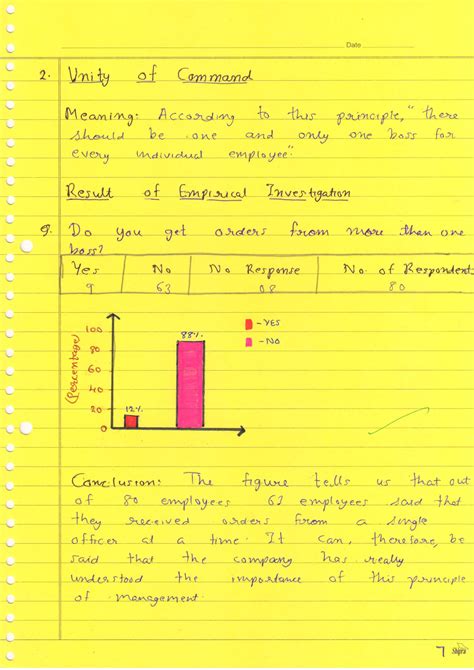 Date
2. Unity of Command
Meaning: According to this principle, "there
should be one and only one boss for
every individual employee".
Result of Empirical Investigation
Q. Do you get orders from more than one
boss?
Yes No No Response No. of Respondent
9 63 08 80
(Percentage)
100
80
60
40
20
0
12%
88%
- YES
- NO
Conclusion: The figure tells us that out
of 80 employees 63 employees said that
they received orders from a single
officer at a time. It can, therefore, be
said that the company has really
understood the importance of this principle
of management.
7 Shipra